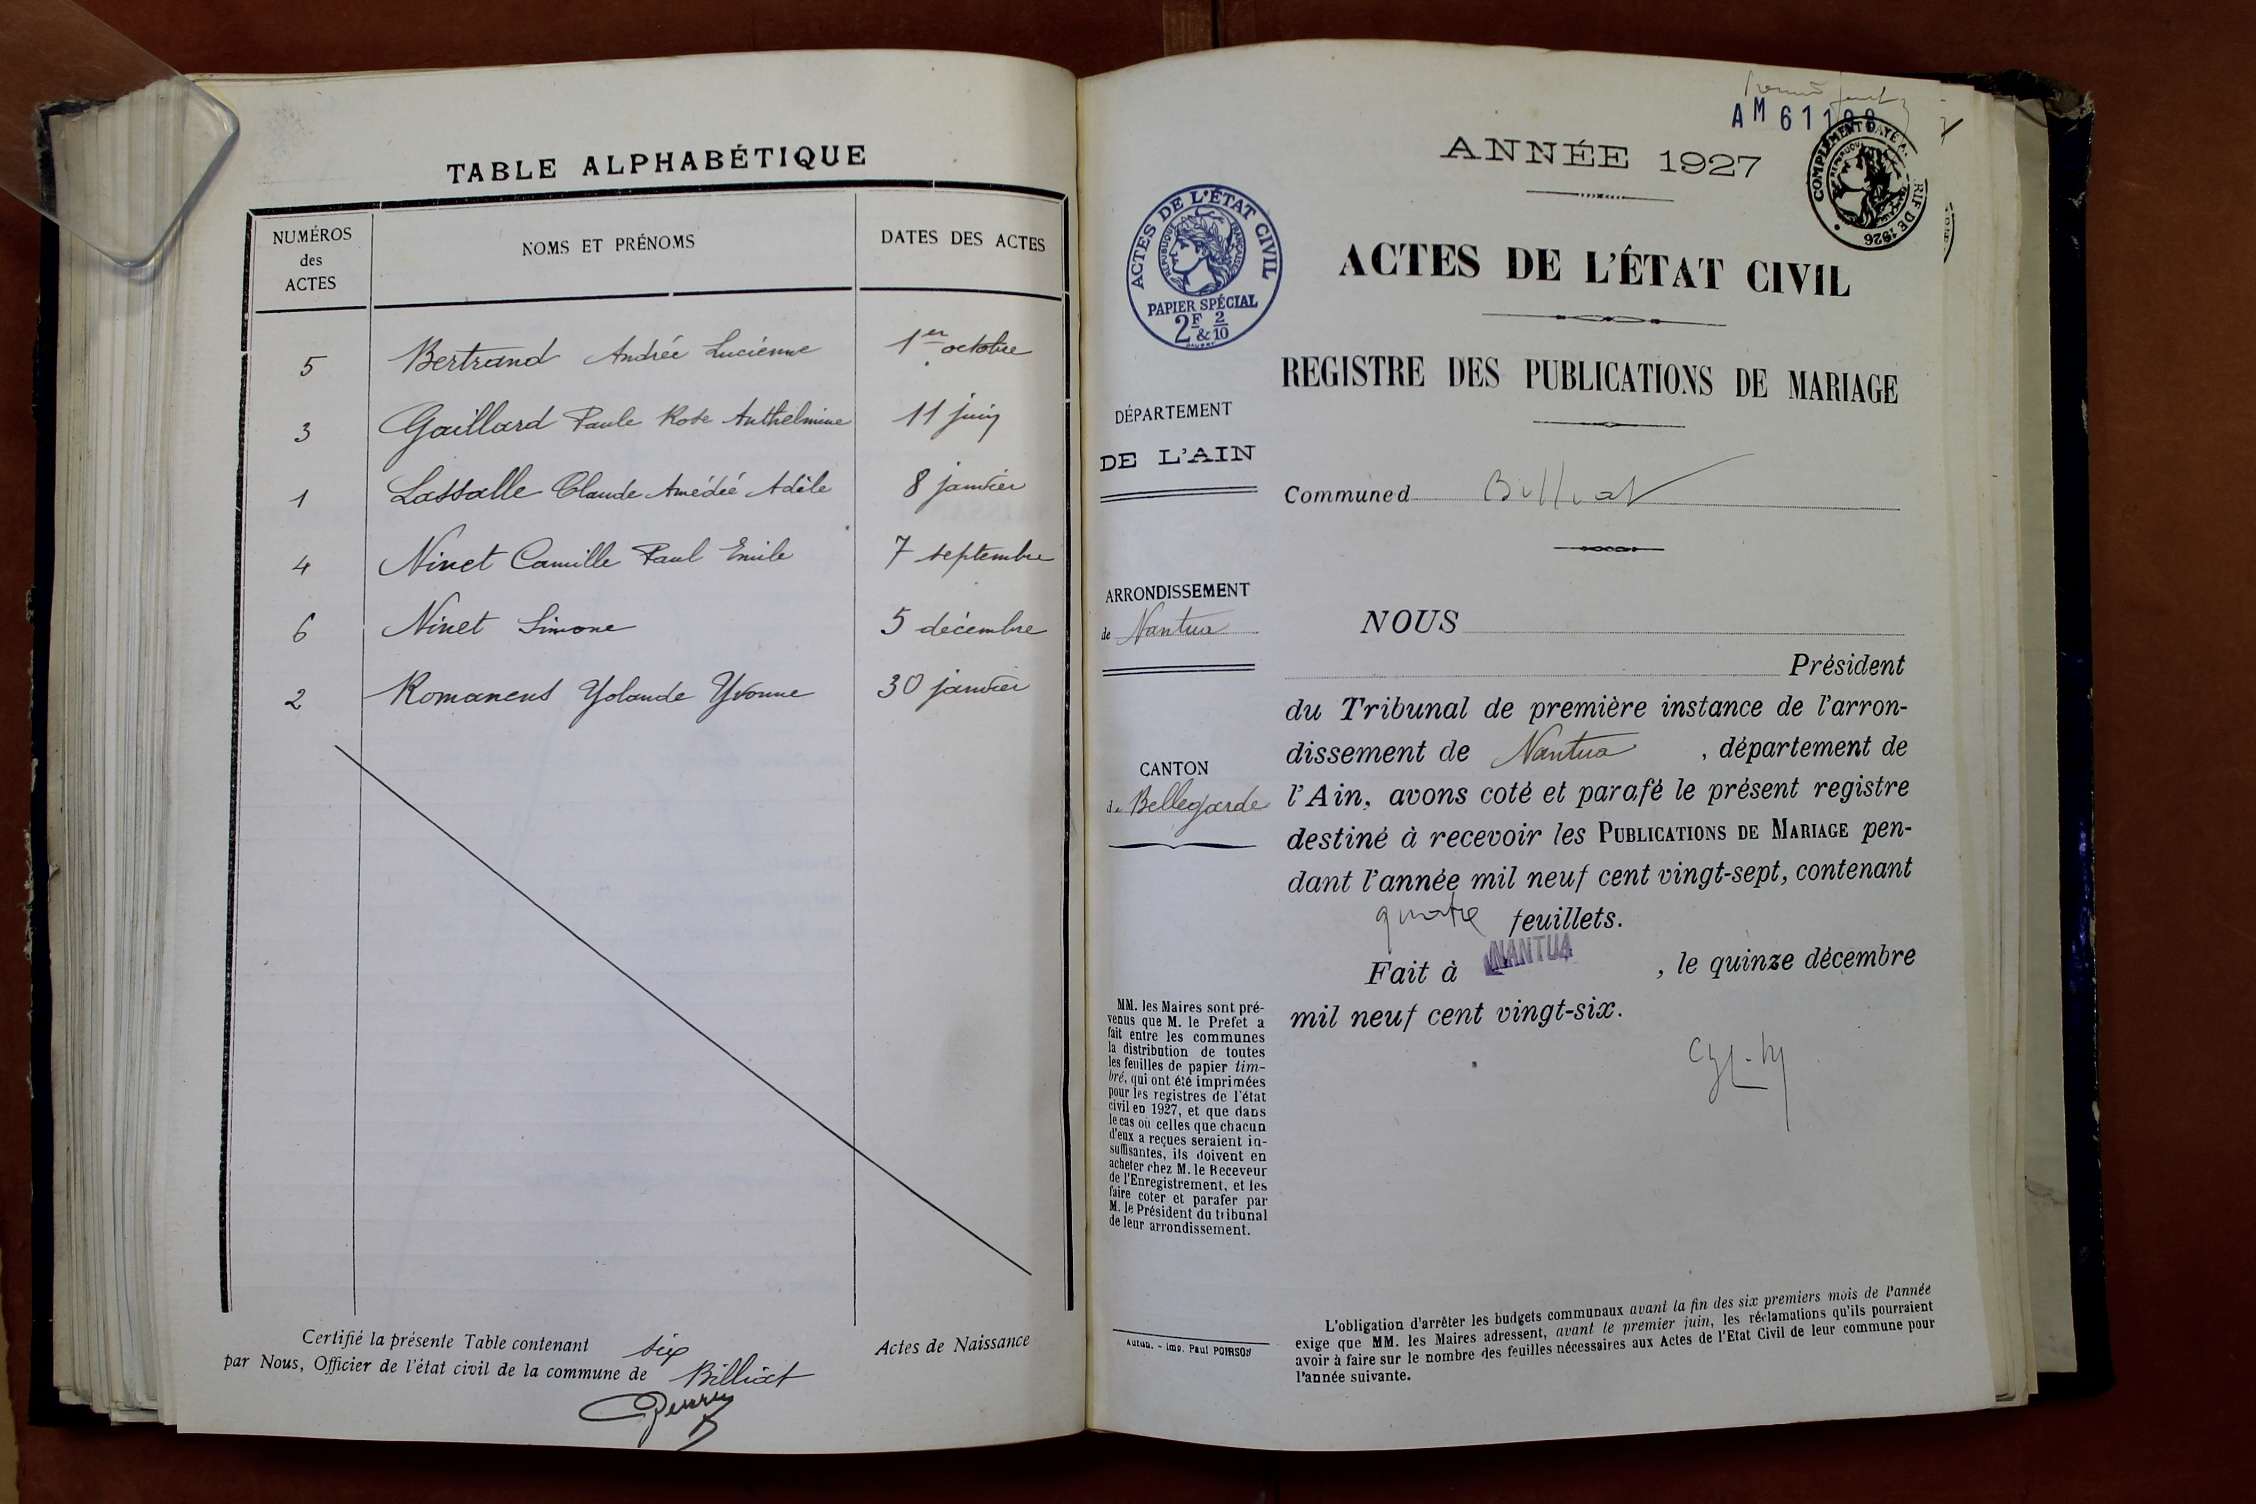 TABLE ALPHABÉTIQUE
NUMÉROS des ACTES NOMS ET PRÉNOMS DATES DES ACTES
5 Bertrand Andrée Lucienne 1er octobre
3 Gaillard Paule Rose Anthelmine 11 juin
1 Lassalle Claude Amédée Adèle 8 janvier
4 Ninet Camille Paul Emile 7 septembre
6 Ninet Simone 5 décembre
2 Romanens Yolande Yvonne 30 janvier
Certifié la présente Table contenant six Actes de Naissance
par Nous, Officier de l'état civil de la commune de Billiat
AM 61
COMPLÉMENT PAYÉ
RIF DE 1926
ANNÉE 1927
ACTES DE L'ÉTAT CIVIL
RÉPUBLIQUE FRANÇAISE
PAPIER SPÉCIAL
2F & 2/10
ACTES DE L'ÉTAT CIVIL
REGISTRE DES PUBLICATIONS DE MARIAGE
DÉPARTEMENT
DE L'AIN
Commune d Billiat
ARRONDISSEMENT
de Nantua
CANTON
de Bellegarde
NOUS
Président
du Tribunal de première instance de l'arron-
dissement de Nantua, département de
l'Ain, avons coté et parafé le présent registre
destiné à recevoir les PUBLICATIONS DE MARIAGE pen-
dant l'année mil neuf cent vingt-sept, contenant
quatre feuillets.
Fait à NANTUA, le quinze décembre
mil neuf cent vingt-six.
MM. les Maires sont pré-
venus que M. le Préfet a
fait entre les communes
la distribution de toutes
les feuilles de papier tim-
bré, qui ont été imprimées
pour les registres de l'état
civil en 1927, et que dans
le cas où celles que chacun
d'eux a reçues seraient in-
suffisantes, ils doivent en
acheter chez M. le Receveur
de l'Enregistrement, et les
faire coter et parafer par
M. le Président du tribunal
de leur arrondissement.
Autun. - Imp. Paul POIRSON
L'obligation d'arrêter les budgets communaux avant la fin des six premiers mois de l'année
exige que MM. les Maires adressent, avant le premier juin, les réclamations qu'ils pourraient
avoir à faire sur le nombre des feuilles nécessaires aux Actes de l'Etat Civil de leur commune pour
l'année suivante.